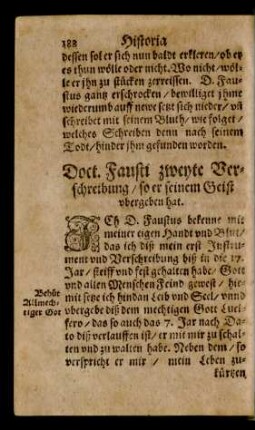 182 Historia
dessen sol er sich nun baldt erkleren/ob er
es thun wölle oder nicht. Wo nicht/wöl-
le er jhn zu stücken zerreissen. D. Fau-
stus gantz erschrocken/bewilliget jhme
wiederumb auff newe setzt sich nieder/vñ
schreibet mit seinem Bluth/wie folget/
welches Schreiben denn nach seinem
Todt/hinder jhm gefunden worden.
Doct. Fausti zweyte Ver-
schreibung/so er seinem Geist
vbergeben hat.
ICh D. Faustus bekenne mit
meiner eigen Handt vnd Blut/
das ich diß mein erst Instru-
ment vnd Verschreibung biß in die 17.
Jar/steiff vnd fest gehalten habe/Gott
vnd allen Menschen Feind gewest/hie-
mit setze ich hindan Leib vnd Seel/vnnd
vbergebe diß dem mechtigen Gott Luci-
fero/das so auch das 7. Jar nach Da-
to diß verlauffen ist/er mit mir zu schal-
ten vnd zu walten habe. Neben dem/so
verspricht er mir/mein Leben zu-
kürtzen
Behüt
Allmech-
tiger Got